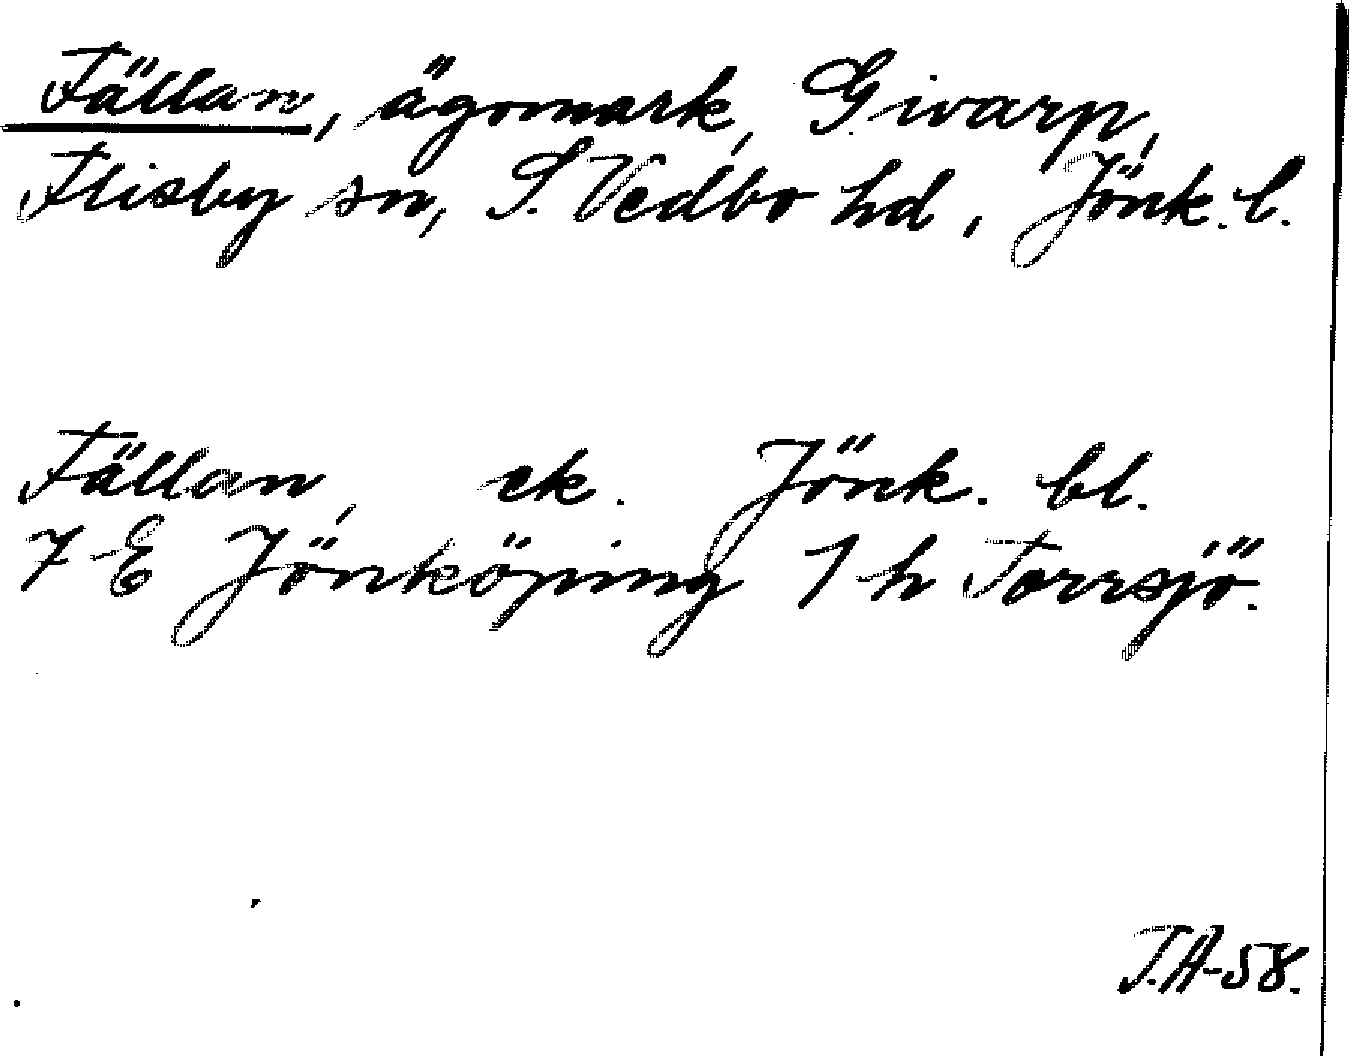 Fällan, ägomark, Givarp,
Flisby sn, S. Vedbo hd, Jönk. l.
Fällan, ek. Jönk. bl.
7 E Jönköping 1 h Torrsjö.
T.A-58.